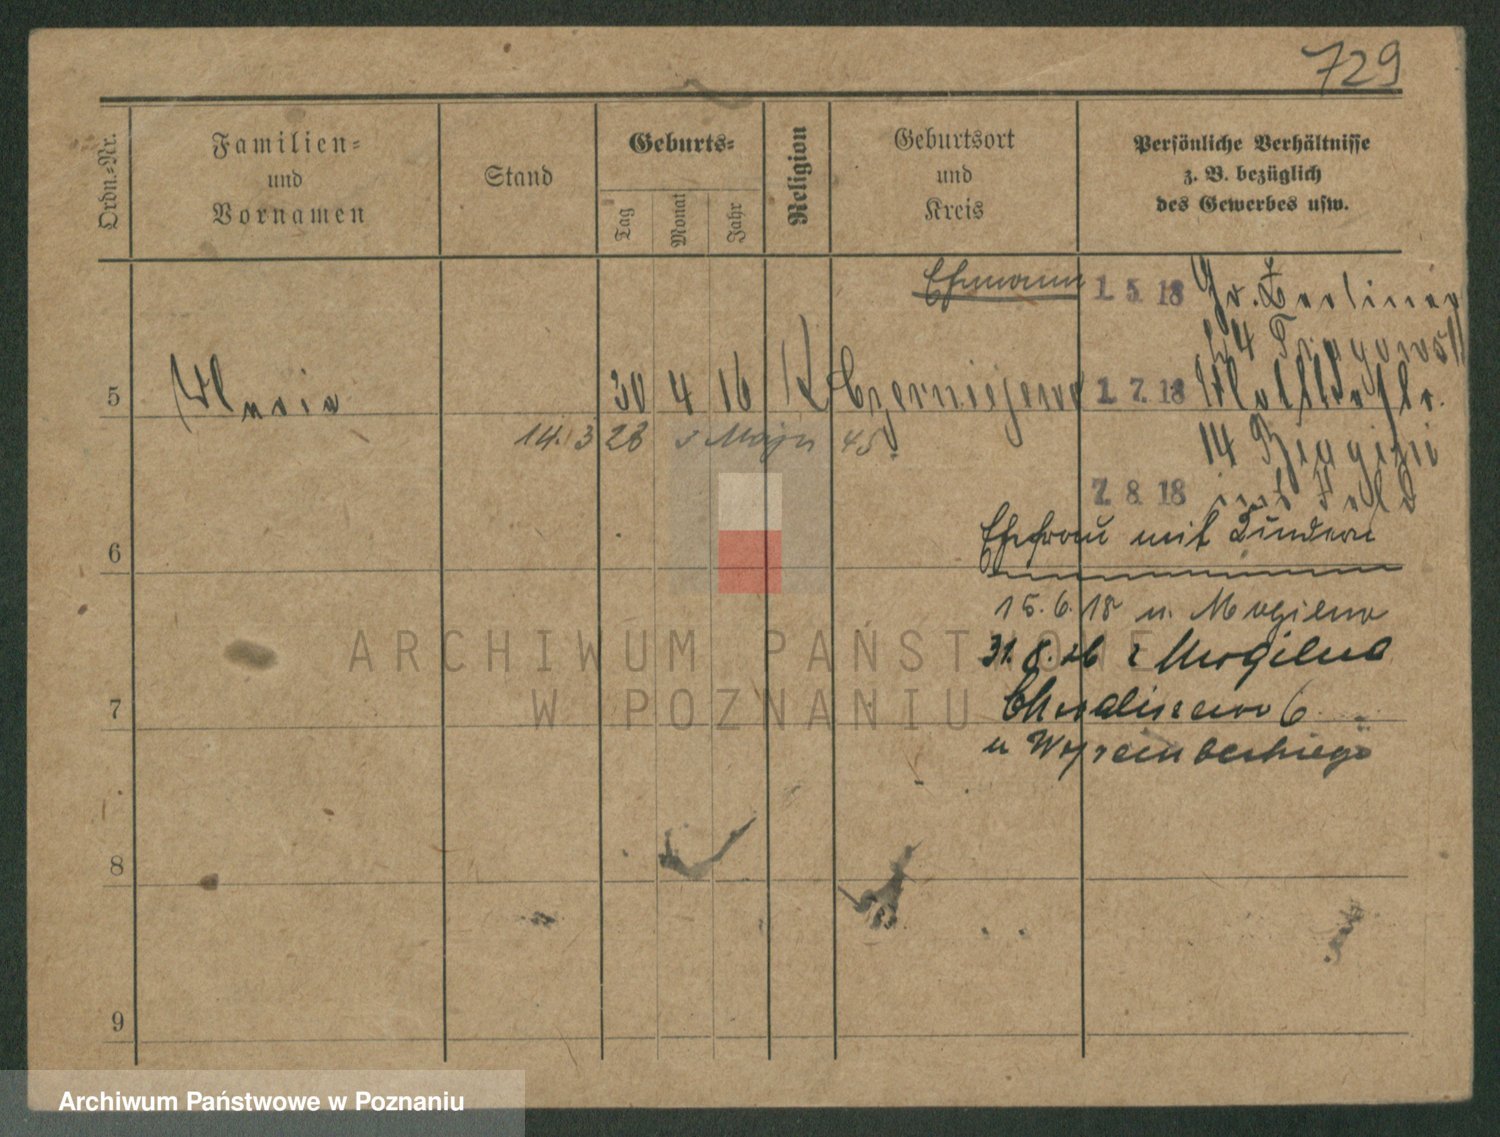 729
Ordn.-Nr.
Familien-
und
Vornamen
Stand
Geburts-
Tag
Monat
Jahr
Religion
Geburtsort
und
Kreis
Persönliche Verhältnisse
z. B. bezüglich
des Gewerbes usw.
Ehemann 1. 5. 18 Gr. Berliner
5 Maria 30 4 16 K Czerniejewo 1. 7. 18
14. 3 28 3 Maja 45
14
7. 8. 18
Ehefrau mit Kindern
6
15. 6. 18 n. Mogilno
31. 8. 26 z Mogilna
7
6
u
8
9
ARCHIWUM PAŃSTWOWE
W POZNANIU
Archiwum Państwowe w Poznaniu